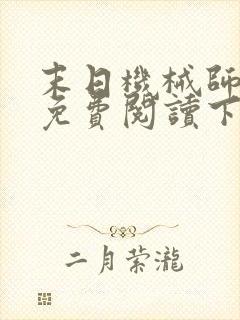 末日機械師
免費閱讀下
二月萦瀧